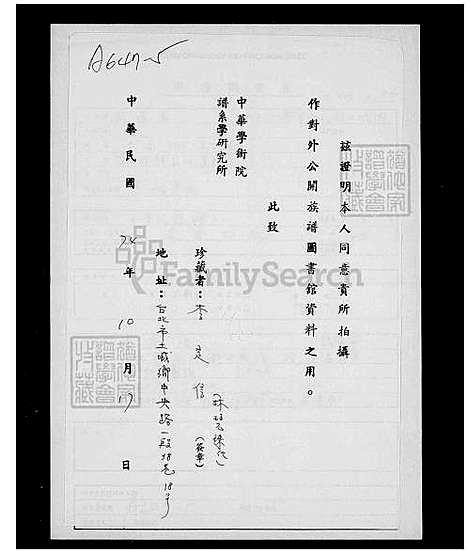 A647-5
茲證明本人同意貴所拍攝
作對外公開族譜圖書館資料之用。
此致
中華學術院
譜系學研究所
珍藏者：李定信(簽章)
地址：台北市土城鄉中央路一段38巷18号
中華民國74年10月17日
FamilySearch